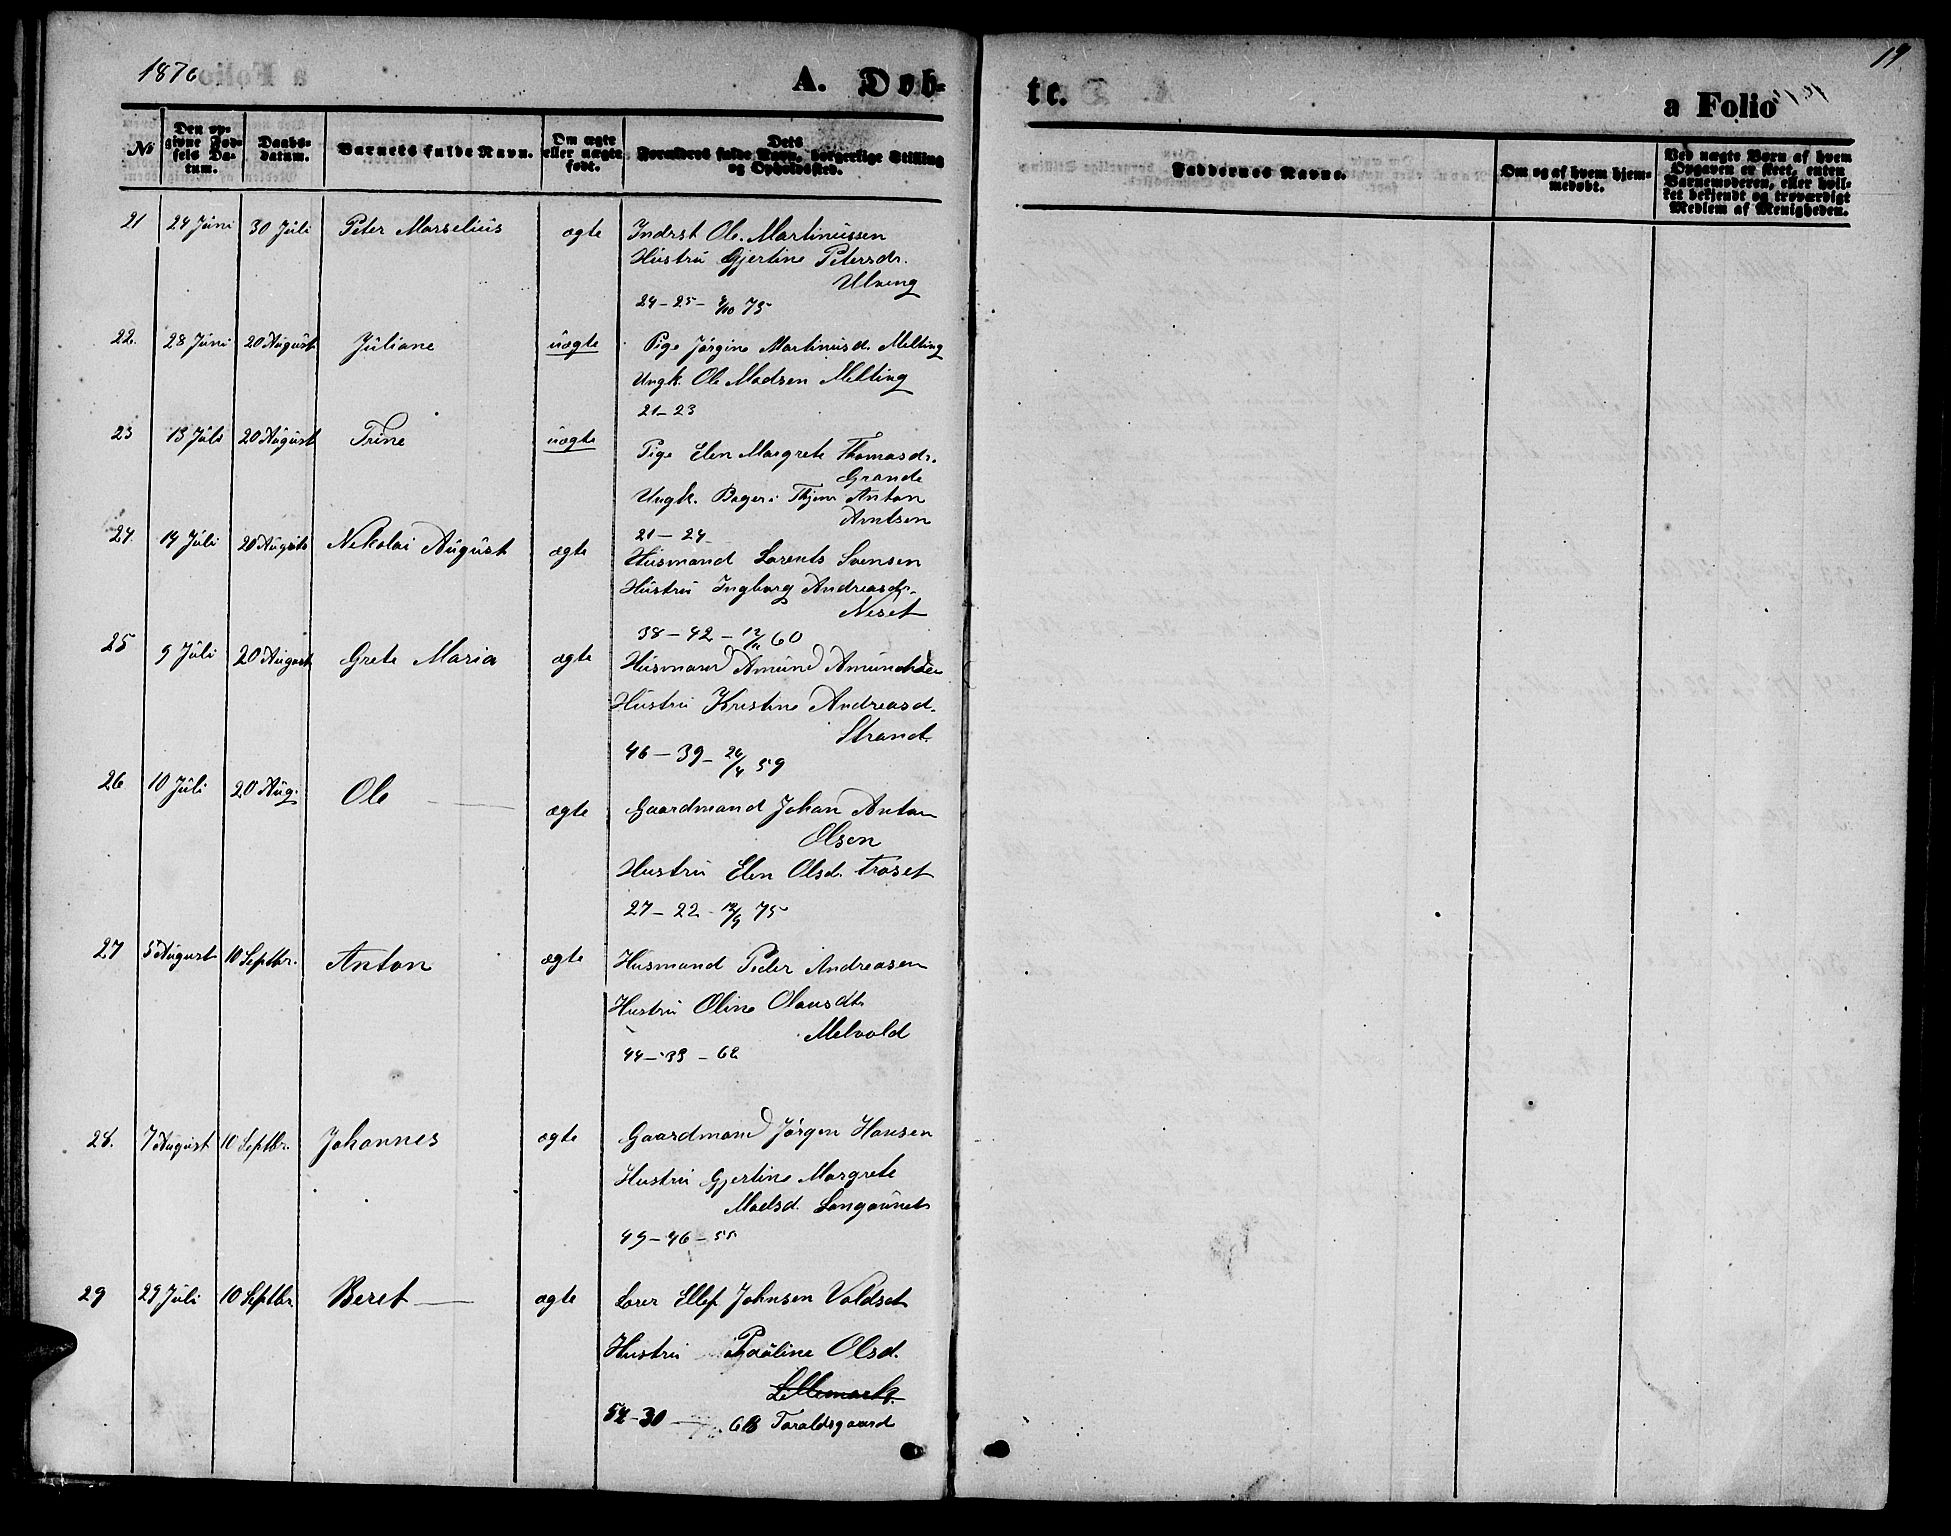 1876
A. Døb-
te.
a Folio
19
No
Den op-
givne Fød-
sels Da-
tum.
Daabs-
datum.
Barnets fulde Navn.
Om ægte
eller uægte
født.
Dets
Forældres fulde Navn, borgerlige Stilling
og Opholdssted.
Faddernes Navne.
Om og af hvem hjem-
medøbt.
Ved uægte Børn af hvem
Opgaven er skeet, enten
Barnemoderen, eller hvil-
ket bekjendt og troværdigt
Medlem af Menigheden.
21 24 Juni 30 Juli Peter Marselius ægte Indrst Ole Martinussen
Hustru Gjertine Petersdr.
Ulving
24-25- 75
22. 28 Juni 20 August Juliane uægte Pige Jørgine Martinusd. Melting
Ungk. Ole Madsen Melting
21-23
23 13 Juli 20 August Trine uægte Pige Elen Margrete Thomasdr.
Grande
Ungk. Anton
Arntsen
21-24
24. 14 Juli 20 August Nikolai August ægte Husmand Lorents Svensen
Hustru Ingborg Andreasdr.
Neset
38-42- 60
25 9 Juli 20 August Grete Maria ægte Husmand Amund Amundsen
Hustru Kristine Andreasd.
Strand.
46-39- 59
26 10 Juli 20 Aug. Ole — ægte Gaardmand Johan Anton
Olsen
Hustru Elen Olsd. Trøset
27-22- 75
27 5 August 10 Septbr. Anton ægte Husmand Peder Andreasen
Hustru Oline Olausdt.
Melvold
44-33-62
28. 7 August 10 Septbr. Johannes ægte Gaardmand Jørgen Hansen
Hustru Gjertine Margrete
Madsd. Langaunet
49-46-55
29 29 Juli 10 Septbr. Beret — ægte Lærer Ellef Johnsen Valdset
Hustru Paaline Olsd.
Lillemark
52-30 — 68 Taraldsgaard